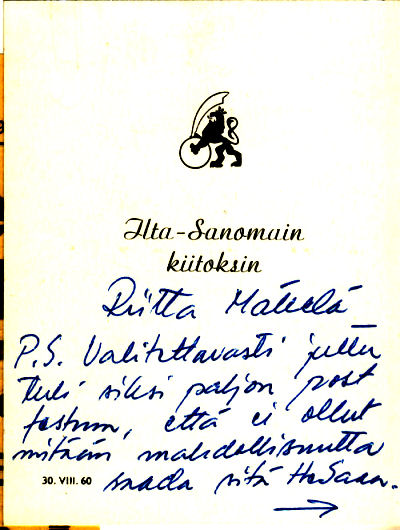 Ilta-Sanomain
kiitoksin
Riitta Mäkelä
P.S. Valitettavasti juttu
tuli siksi paljon post
festum, että ei ollut
mitään mahdollisuutta
saada sitä HeSaan.
30. VIII. 60